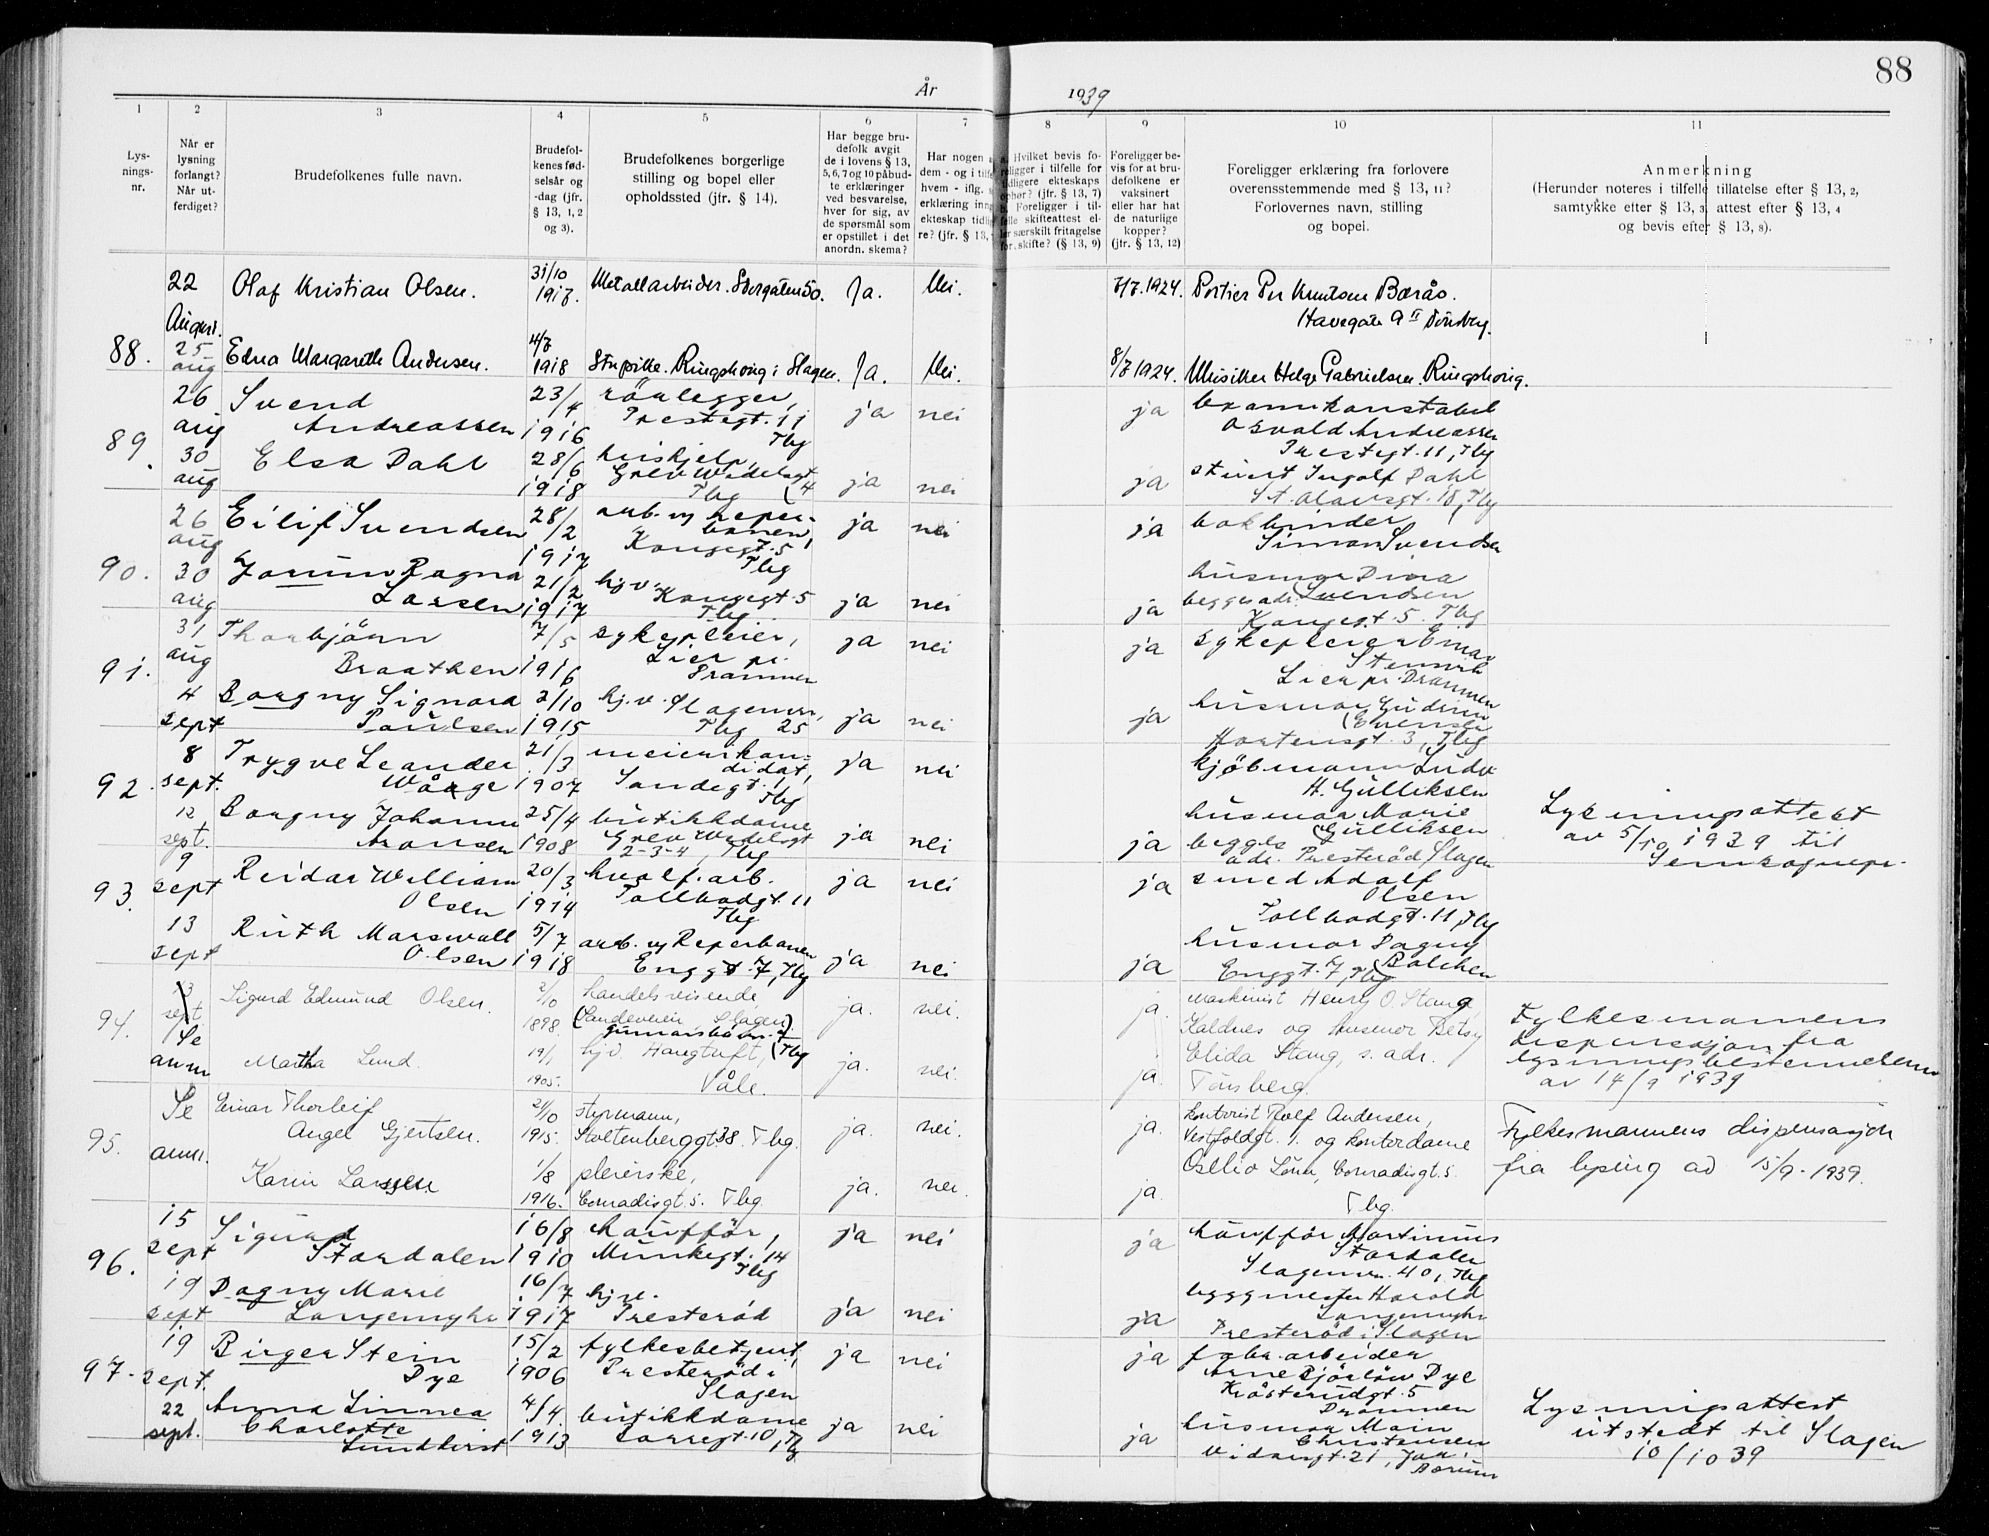 88
År
1939
1
2
3
4
5
6
7
8
9
10
11
Lys-
nings-
nr.
Når er
lysning
forlangt?
Når ut-
ferdiget?
Brudefolkenes fulle navn.
Brudefol-
kenes fød-
selsår og
-dag (jfr.
§ 13, 1, 2
og 3).
Brudefolkenes borgerlige
stilling og bopel eller
opholdssted (jfr. § 14).
Har begge bru-
defolk avgit
de i lovens § 13,
5, 6, 7 og 10 påbud-
te erklæringer
ved besvarelse,
hver for sig, av
de spørsmål som
er opstillet i det
anordn. skema?
Har nogen
dem - og i tilf
hvem - iflg.
erklæring inng
ekteskap tidlig
re? (jfr. § 13,
a. Hvilket bevis fo-
religger i tilfelle for
tidligere ekteskaps
ophør? (jfr. § 13, 7)
b. Foreligger i til-
felle skifteattest el-
ler særskilt fritagelse
for skifte? (§ 13, 9)
Foreligger be-
vis for at bru-
defolkene er
vaksinert
eller har hat
de naturlige
kopper?
(jfr. § 13, 12)
Foreligger erklæring fra forlovere
overensstemmende med § 13, 11?
Forlovernes navn, stilling
og bopel.
Anmerkning
(Herunder noteres i tilfelle tillatelse efter § 13, 2,
samtykke efter § 13, 3, attest efter § 13, 4
og bevis efter § 13, 8).
22 August. Olaf Kristian Olsen. 31/10 1917. Metallarbeider. Storgaten 50. Ja. Nei. 7/7.1924. Portier Per Knutsen Berås.
Havegate 9 II Tønsberg.
88. 25 aug Edna Margarethe Andersen. 4/7 1918 Ringshaug i Slagen. Ja. Nei. 8/7 1924. Musiker Helge Gabrielsen Ringshaug.
26 aug Svend
Andreassen 23/4 1916 rörlegger,
Prestegt. 11
Tbg ja nei ja brannkonstabel
Osvald Andreassen
Prestegt. 11, Tbg
89. 30 aug Elsa Dahl 28/6 1918 hushjelp
Grev Wedelsgt
4 Tbg ja nei ja stuert Ingolf Dahl
St. Olavsgt. 18, Tbg
26 aug Eilif Svendsen 28/2 1917 arb. v/ reper-
banen,
Kongegt. 5
Tbg ja nei ja bokbinder
Simon Svendsen
90. 30 aug Jorunn Ragna
Larsen 21/2 1917 hj.v.
Kongegt 5
Tbg ja nei ja husmor
begges adr. Svendsen
Kongegt. 5. Tbg
91. 31 aug Thorbjörn
Braathen 7/5 1916 sykepleier,
Lier pr.
Drammen ja nei ja sykepleier Einar
Lier pr. Drammen
4 sept Borgny Signora
Paulsen 2/10 1915 hj.v. Slagenvn.
Tbg 25 ja nei ja husmor Gudrun
Evensen
Hortensgt. 3, Tbg
92. 8 sept. Trygve Leander
Wåge 21/3 1907 meierikan-
didat,
Tbg ja nei kjöbmann Ludv.
H. Gulliksen
12 sept. Borgny Johanne
Aronsen 25/4 1908 butikkdame
Grev Wedelsgt
2-3-4, Tbg ja nei ja husmor Marie
Gulliksen
begges
adr. Presteröd Slagen
Lysningsattest
av 5/10 1939 til
Sem sognepr.
93. 9 sept Reidar William
Olsen 20/3 1914 hvalf. arb.
Tollbodgt. 11
Tbg ja nei ja smed Adolf
Olsen
Tollbodgt. 11, Tbg
13 sept Ruth Marswall
Olsen 5/7 1918 arb. v/ Reperbanen
Enggt. 7, Tbg ja nei ja husmor Dagny
Enggt. 7, Tbg
94. 13 sept Se anm Sigurd Edmund Olsen. 2/10 1898. handelsreisende
(Sandeveien Slagen)
Tbg ja. nei. ja. Maskinist Henry O. Stang
Kaldnes og husmor Betsy
Martha Lund. 19/1 1905. hj.v. Haugtuft,
Våle. ja. nei. ja. Elida Stang, s. adr.
Tönsberg.
Fylkesmannens
dispensasjon fra
lysningsbestemmelsene
av 14/9 1939
95. Se anm. Einar Thorleif
Angel Gjertsen. 21/10 1915. styrmann,
Stoltenberggt 38. Tbg. ja. nei. ja. kontorist Rolf Andersen,
Vestfoldgt. 1. og kontordame
Karin Larsen. 1/8 1916. pleierske,
Conradisgt. 5. Tbg. ja. nei. ja. Conradisgt. 5.
Tbg.
Fylkesmannens dispensasjon
fra lysing ad 15/9-1939.
96. 15 sept Sigurd
Stordalen 16/8 1910 chauffför,
Munkegt. 14
Tbg ja nei ja chauffför Martinius
Stordalen
Slagenvn. 40, Tbg
19 sept Dagny Marie
Langemyhr 16/7 1917 hj.v.
Presteröd ja nei ja byggmester Harald
Langemyhr
Presteröd i Slagen
97. 19 sept. Birger Stein
Dye 15/2 1906 fylkesbetjent,
Presteröd i
Slagen ja nei ja fabr. arbeider
Arne Björlöw Dye
Drammen
22 sept. Anna Linnea
Charlotte
Lundkvist 4/4. 1913 butikkdame
Tbg ja nei ja husmor
Christensen
Vidarsgt. 21,
Lysningsattest
utstedt til Slagen
10/10 39